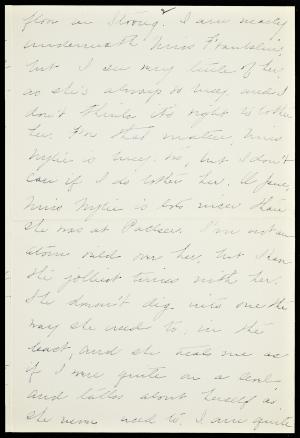 2
floor in Strong. I am nearly
underneath Miss Franklin,
but I see very little of her,
as she's always so busy, and I
don't think it's right to bother
her. For that matter, Miss
Wylie is busy, too, but I don't
care if I do bother her. O Jane,
Miss Wylie is lots nicer than
she was at Putten. I'm not an
atom wild over her, but I have
the jolliest times with her.
She doesn't dig into one the
way she used to, in the
least, and she treats me as
if I were quite on a level
and talks about herself as
she never used to. I am quite